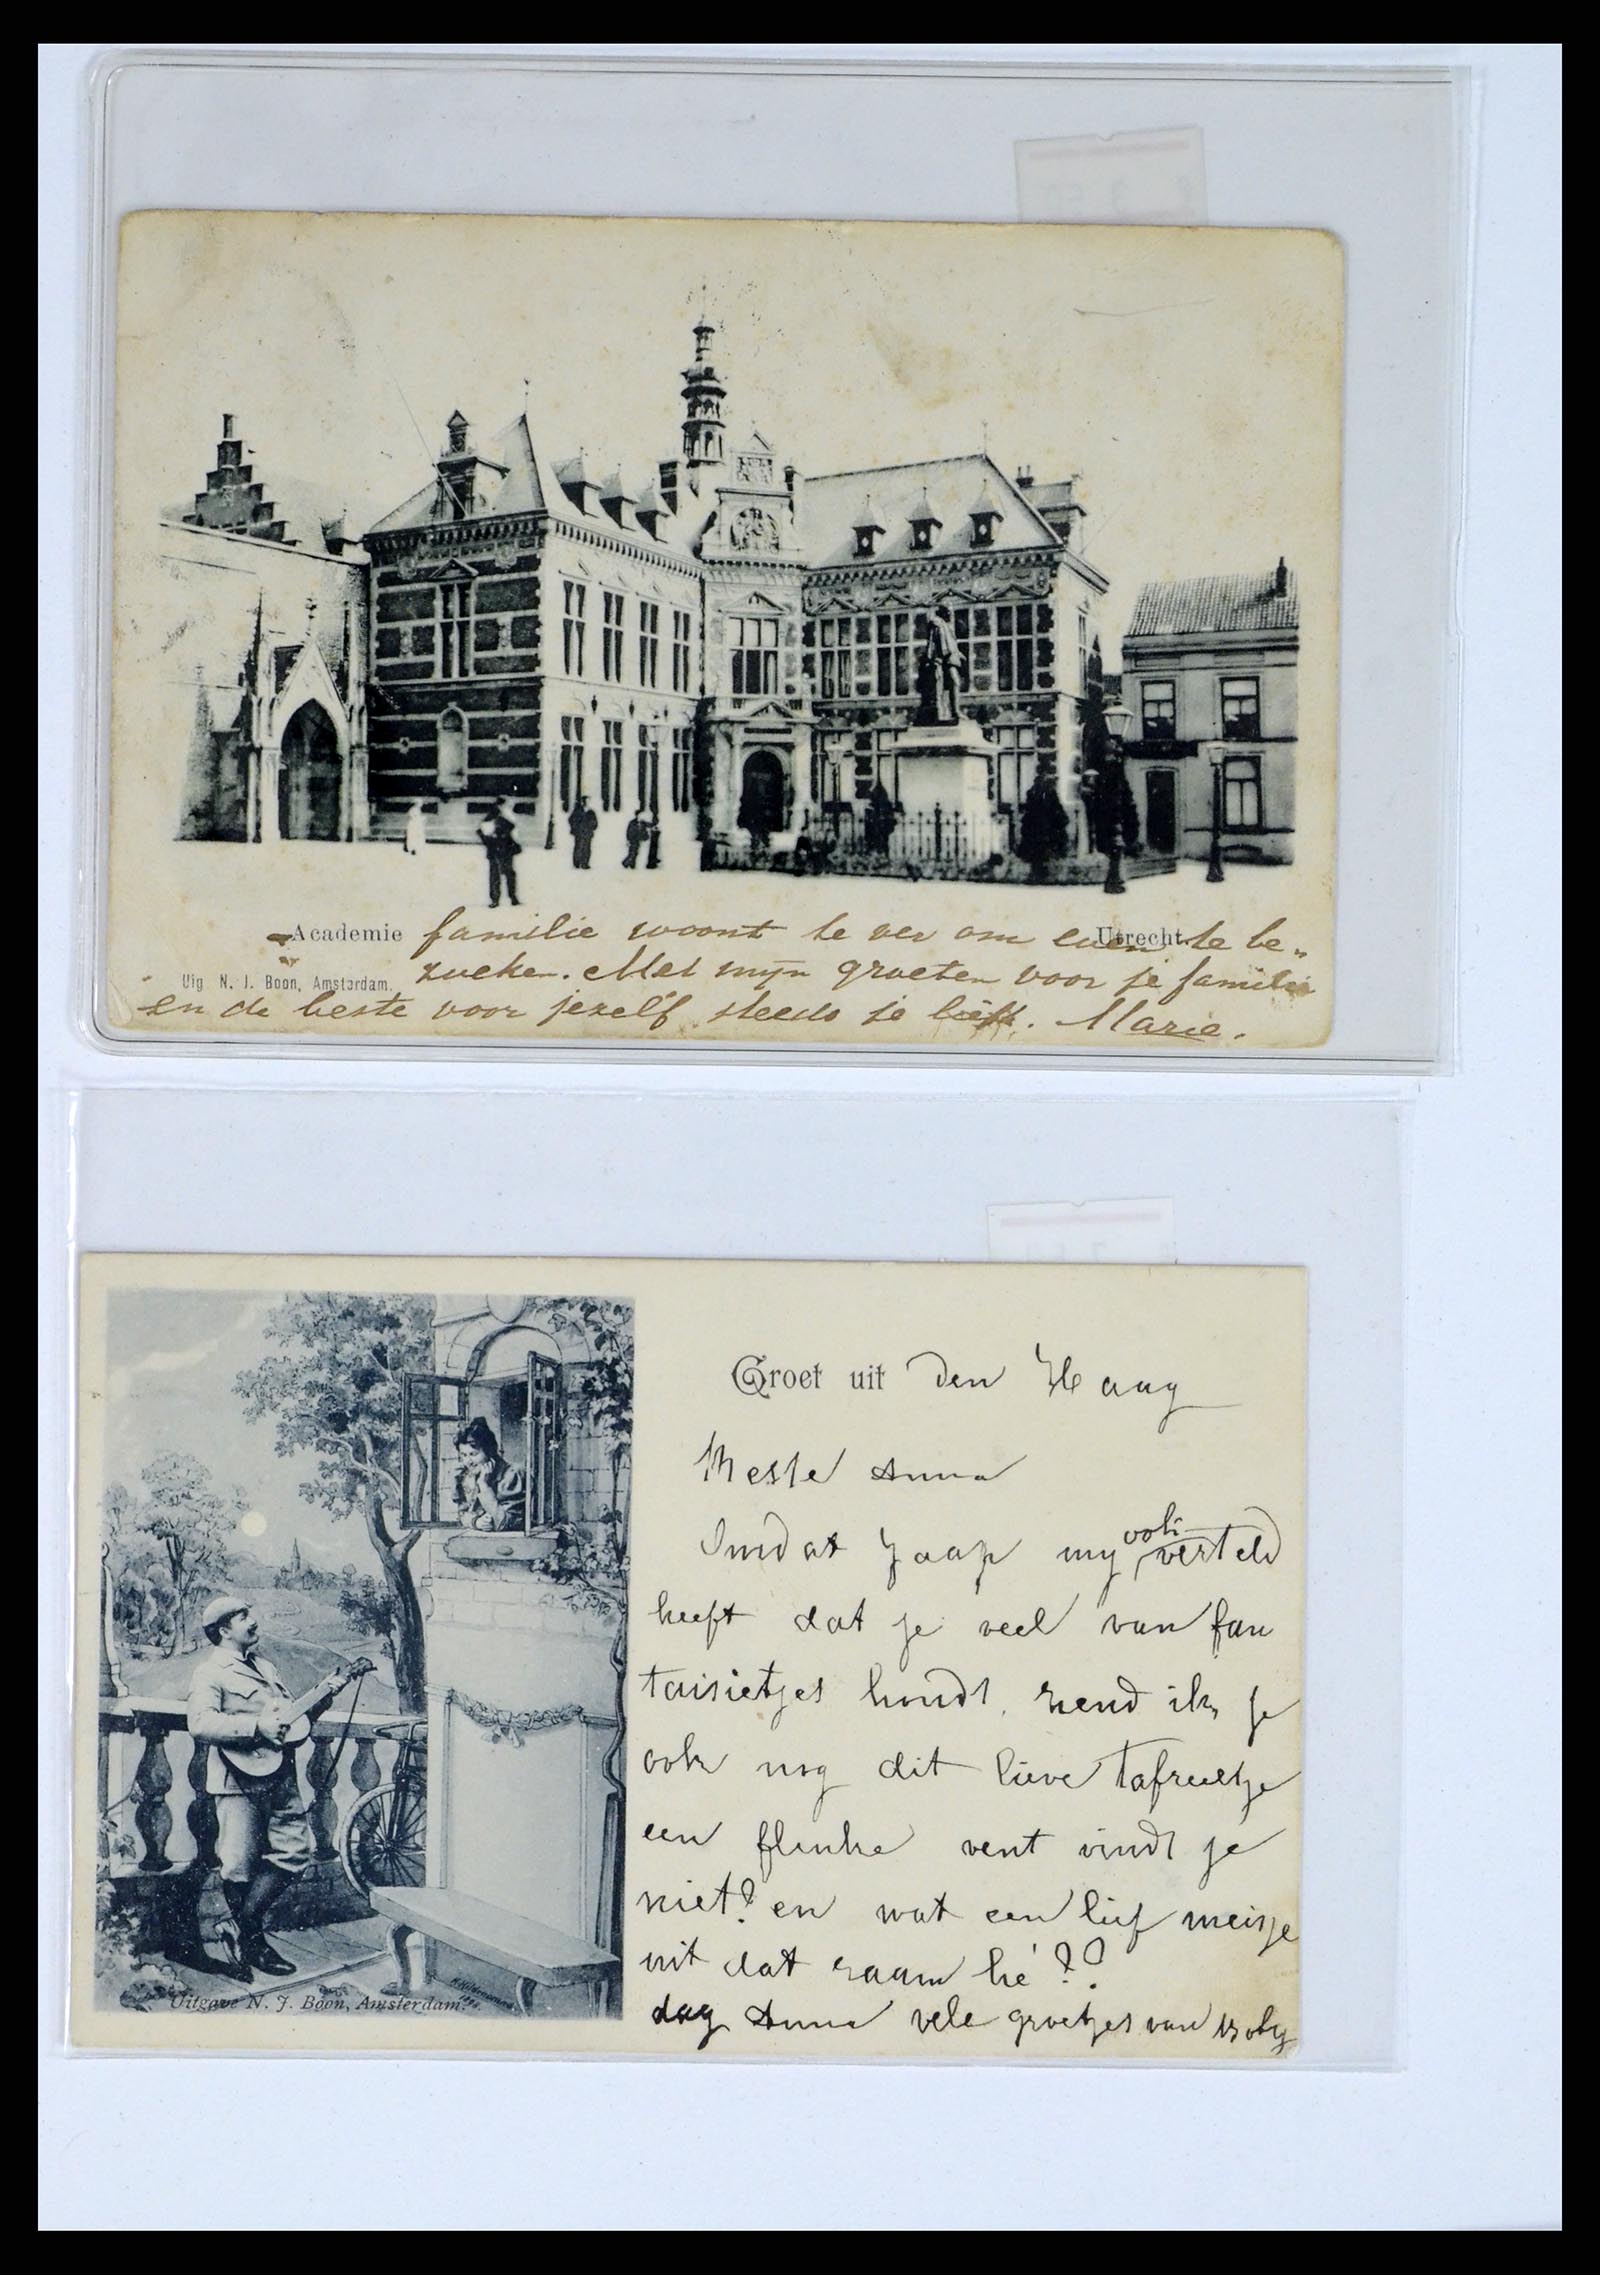 Academie familie woont te ver om even te be„ Utrecht.
zoeken. Met mijn groeten voor je familie
Uig N. J. Boon, Amsterdam.
en de beste voor jezelf steeds je liefh. Marie.
Groet uit den Haag
Beste Anna
Omdat Jaap my ook verteld
heeft dat je veel van fan
taisietjes houdt, zend ik je
ook nog dit lieve tafreeltje
een flinke vent vindt je
niet? en wat een lief meisje
uit dat raam hé??
dag Anna vele groetjes van
Uitgave N. J. Boon, Amsterdam.